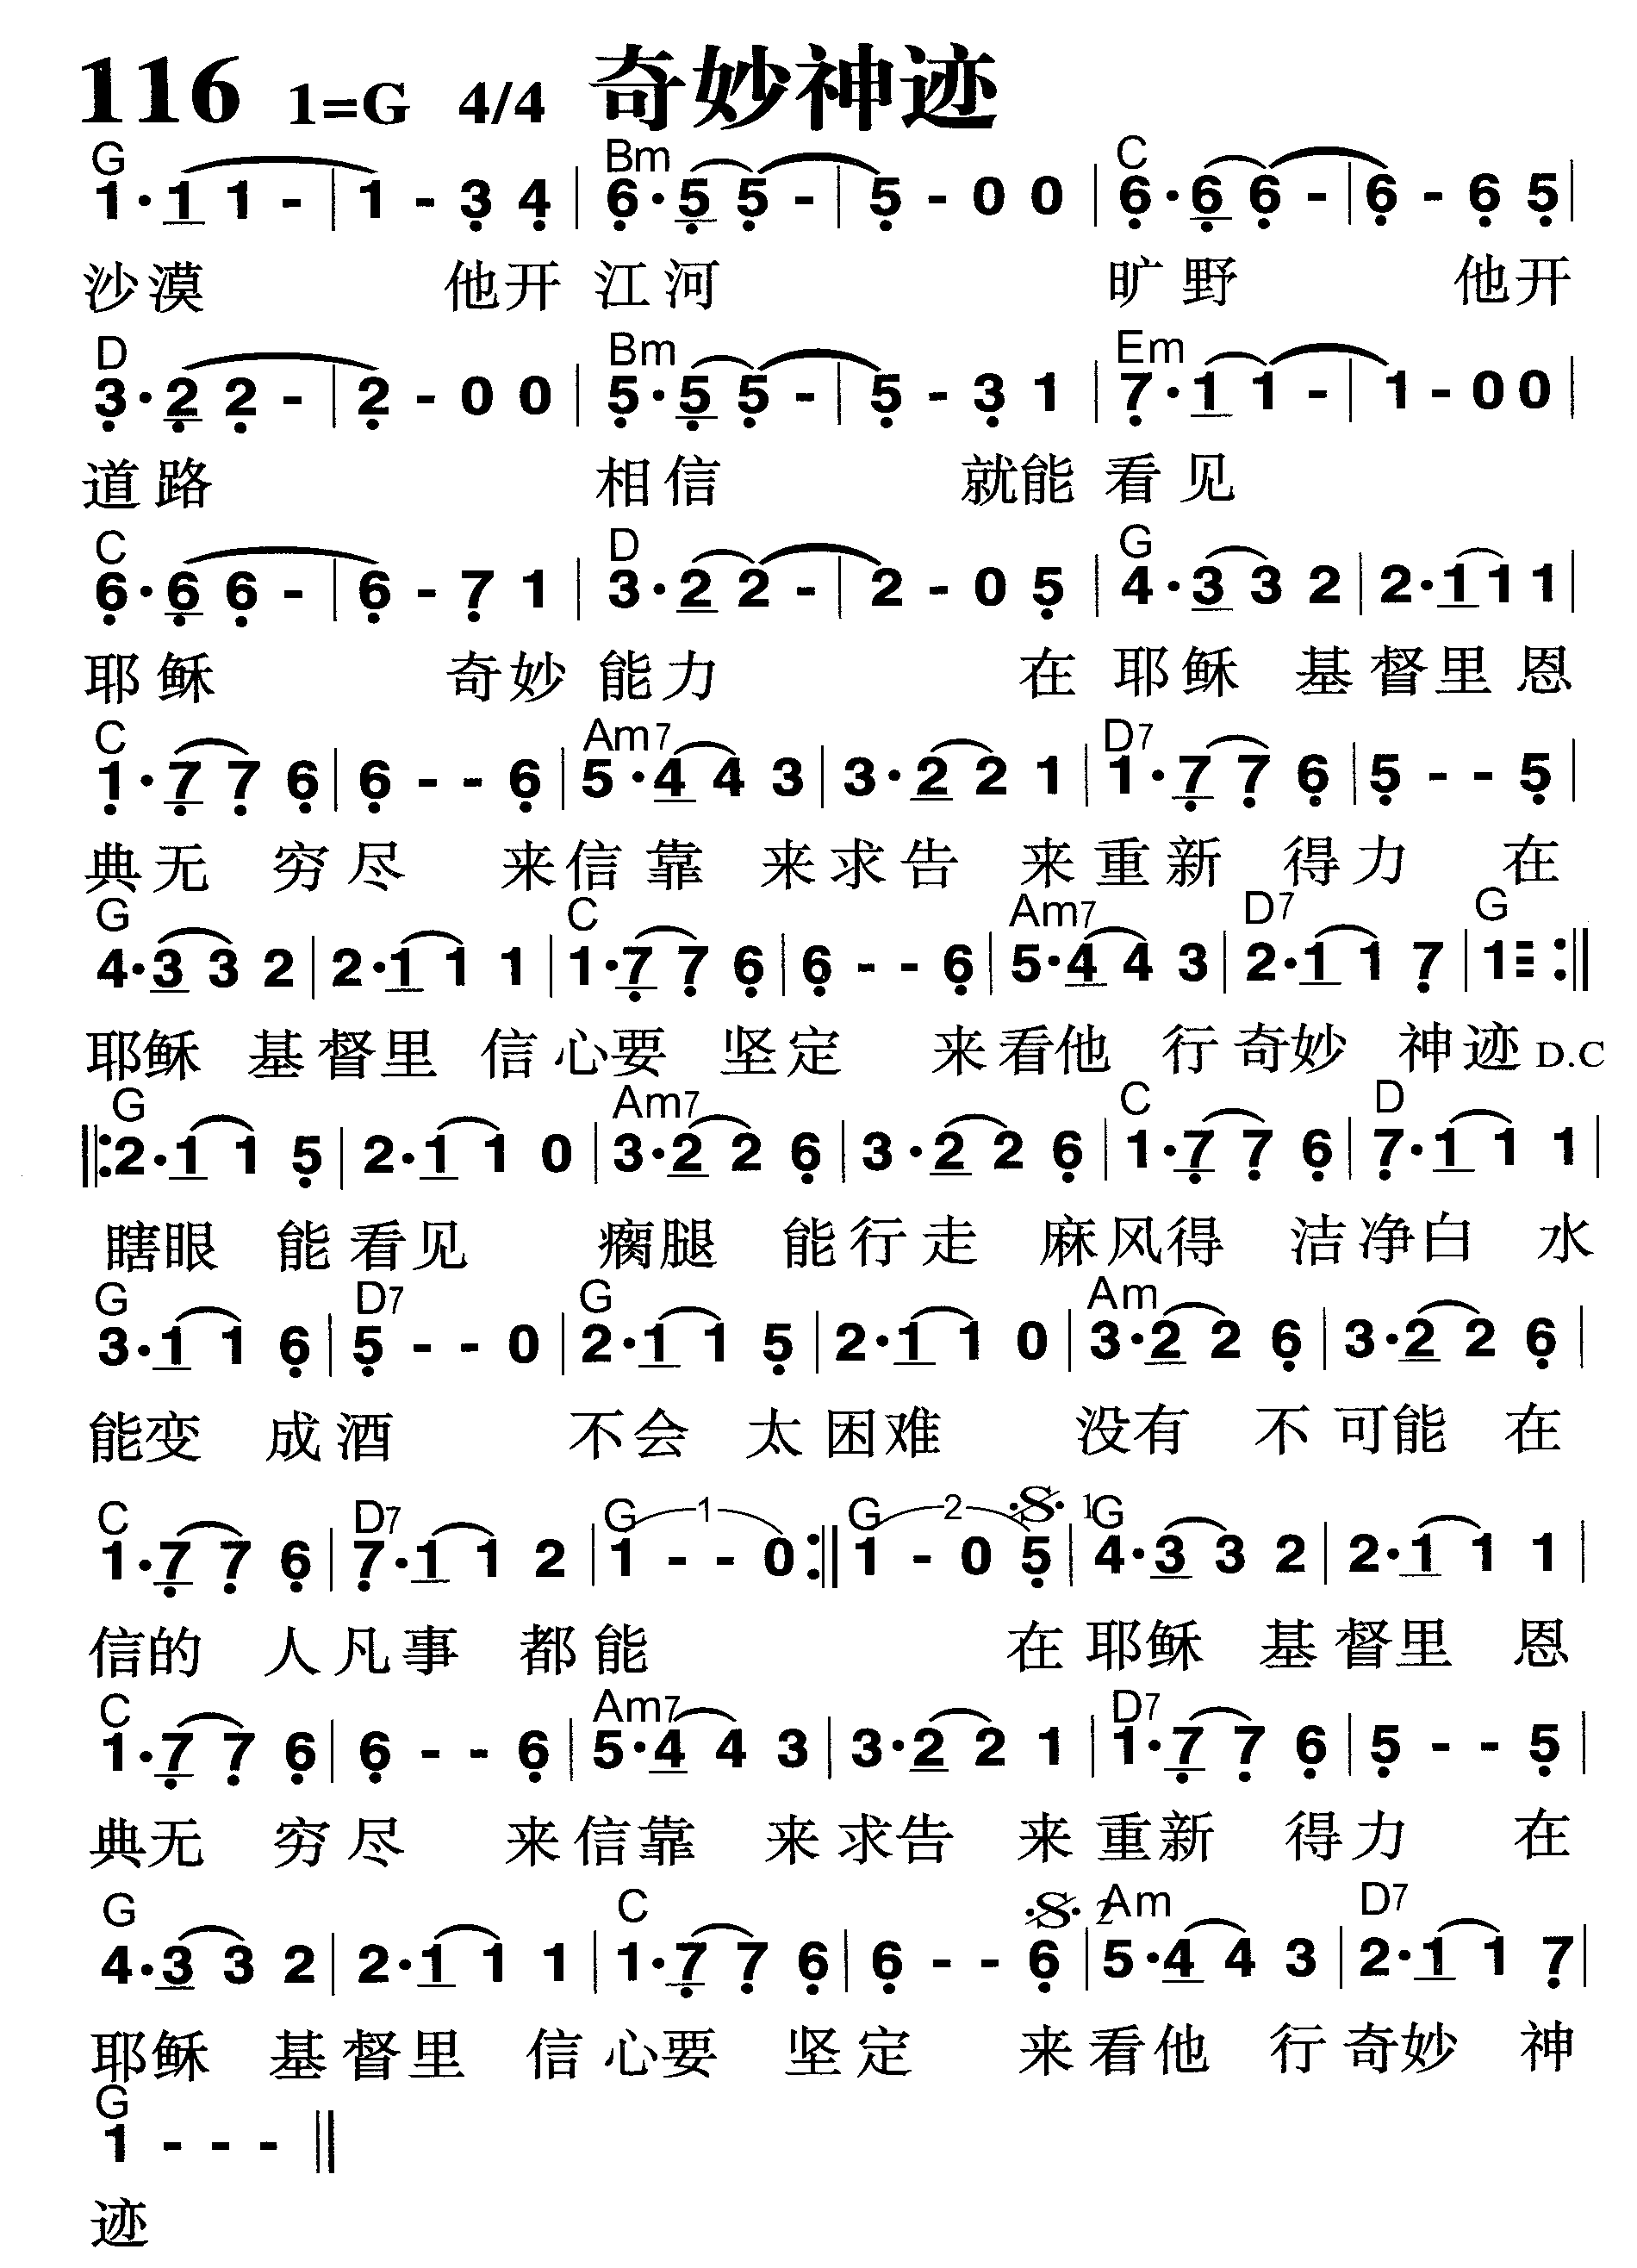 116 1=G 4/4 奇妙神迹
G Bm C
1·1 1 - | 1 - 3 4 | 6·5 5 - | 5 - 0 0 | 6·6 6 - | 6 - 6 5 |
沙漠 他开 江河 旷野 他开
D Bm Em
3·2 2 - | 2 - 0 0 | 5·5 5 - | 5 - 3 1 | 7·1 1 - | 1 - 0 0 |
道路 相信 就能 看见
C D G
6·6 6 - | 6 - 7 1 | 3·2 2 - | 2 - 0 5 | 4·3 3 2 | 2·1 1 1 |
耶稣 奇妙 能力 在 耶稣 基督里 恩
C Am7 D7
1·7 7 6 | 6 - - 6 | 5·4 4 3 | 3·2 2 1 | 1·7 7 6 | 5 - - 5 |
典无 穷尽 来信靠 来求告 来重新 得力 在
G C Am7 D7 G
4·3 3 2 | 2·1 1 1 | 1·7 7 6 | 6 - - 6 | 5·4 4 3 | 2·1 1 7 | 1 - - - :||
耶稣 基督里 信心要 坚定 来看他 行奇妙 神迹 D.C
G Am7 C D
||: 2·1 1 5 | 2·1 1 0 | 3·2 2 6 | 3·2 2 6 | 1·7 7 6 | 7·1 1 1 |
瞎眼 能看见 瘸腿 能行走 麻风得 洁净白 水
G D7 G Am
3·1 1 6 | 5 - - 0 | 2·1 1 5 | 2·1 1 0 | 3·2 2 6 | 3·2 2 6 |
能变 成酒 不会 太困难 没有 不可能 在
C D7 G 1 G 2 𝄋 1 G
1·7 7 6 | 7·1 1 2 | 1 - - 0 :|| 1 - 0 5 | 4·3 3 2 | 2·1 1 1 |
信的 人凡事 都能 在 耶稣 基督里 恩
C Am7 D7
1·7 7 6 | 6 - - 6 | 5·4 4 3 | 3·2 2 1 | 1·7 7 6 | 5 - - 5 |
典无 穷尽 来信靠 来求告 来重新 得力 在
G C 𝄋 2 Am D7
4·3 3 2 | 2·1 1 1 | 1·7 7 6 | 6 - - 6 | 5·4 4 3 | 2·1 1 7 |
耶稣 基督里 信心要 坚定 来看他 行奇妙 神
G
1 - - - ||
迹